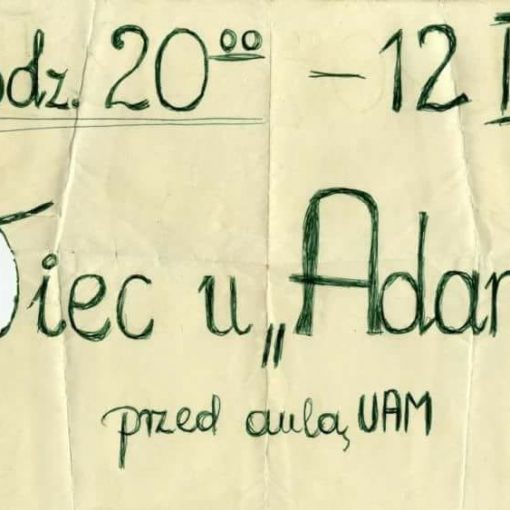 odz. 20⁰⁰ - 12 I
iec u „Adam
przed aulą UAM